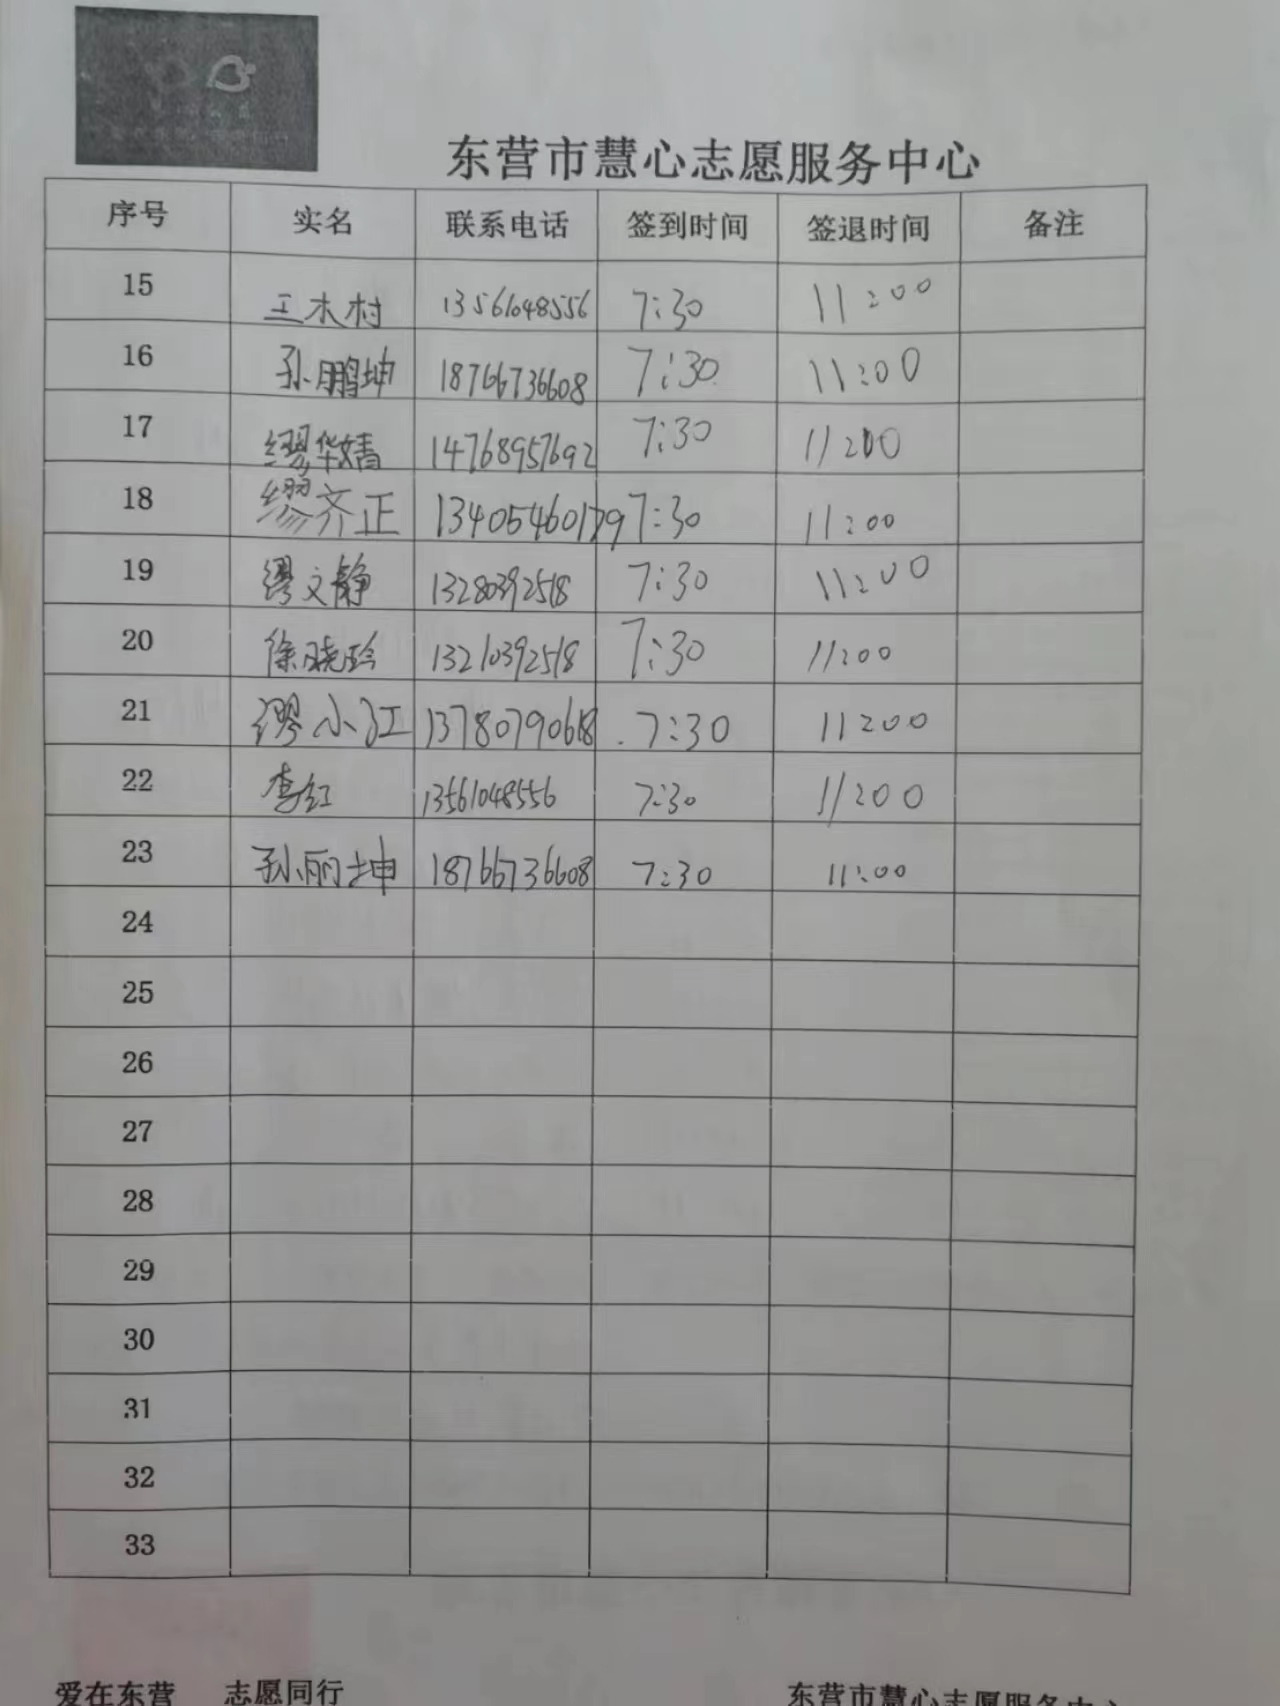 东营市慧心志愿服务中心
序号 实名 联系电话 签到时间 签退时间 备注
15 王木村 13561048556 7:30 11:00
16 孙鹏坤 18766736608 7:30 11:00
17 缪华婧 14768957692 7:30 11:00
18 缪齐正 13405460179 7:30 11:00
19 缪文静 13280392518 7:30 11:00
20 徐晓玲 13210392518 7:30 11:00
21 缪小红 13780790618 7:30 11:00
22 李红 13561048556 7:30 11:00
23 孙丽坤 18766736608 7:30 11:00
24
25
26
27
28
29
30
31
32
33
爱在东营 志愿同行 东营市慧心志愿服务中心